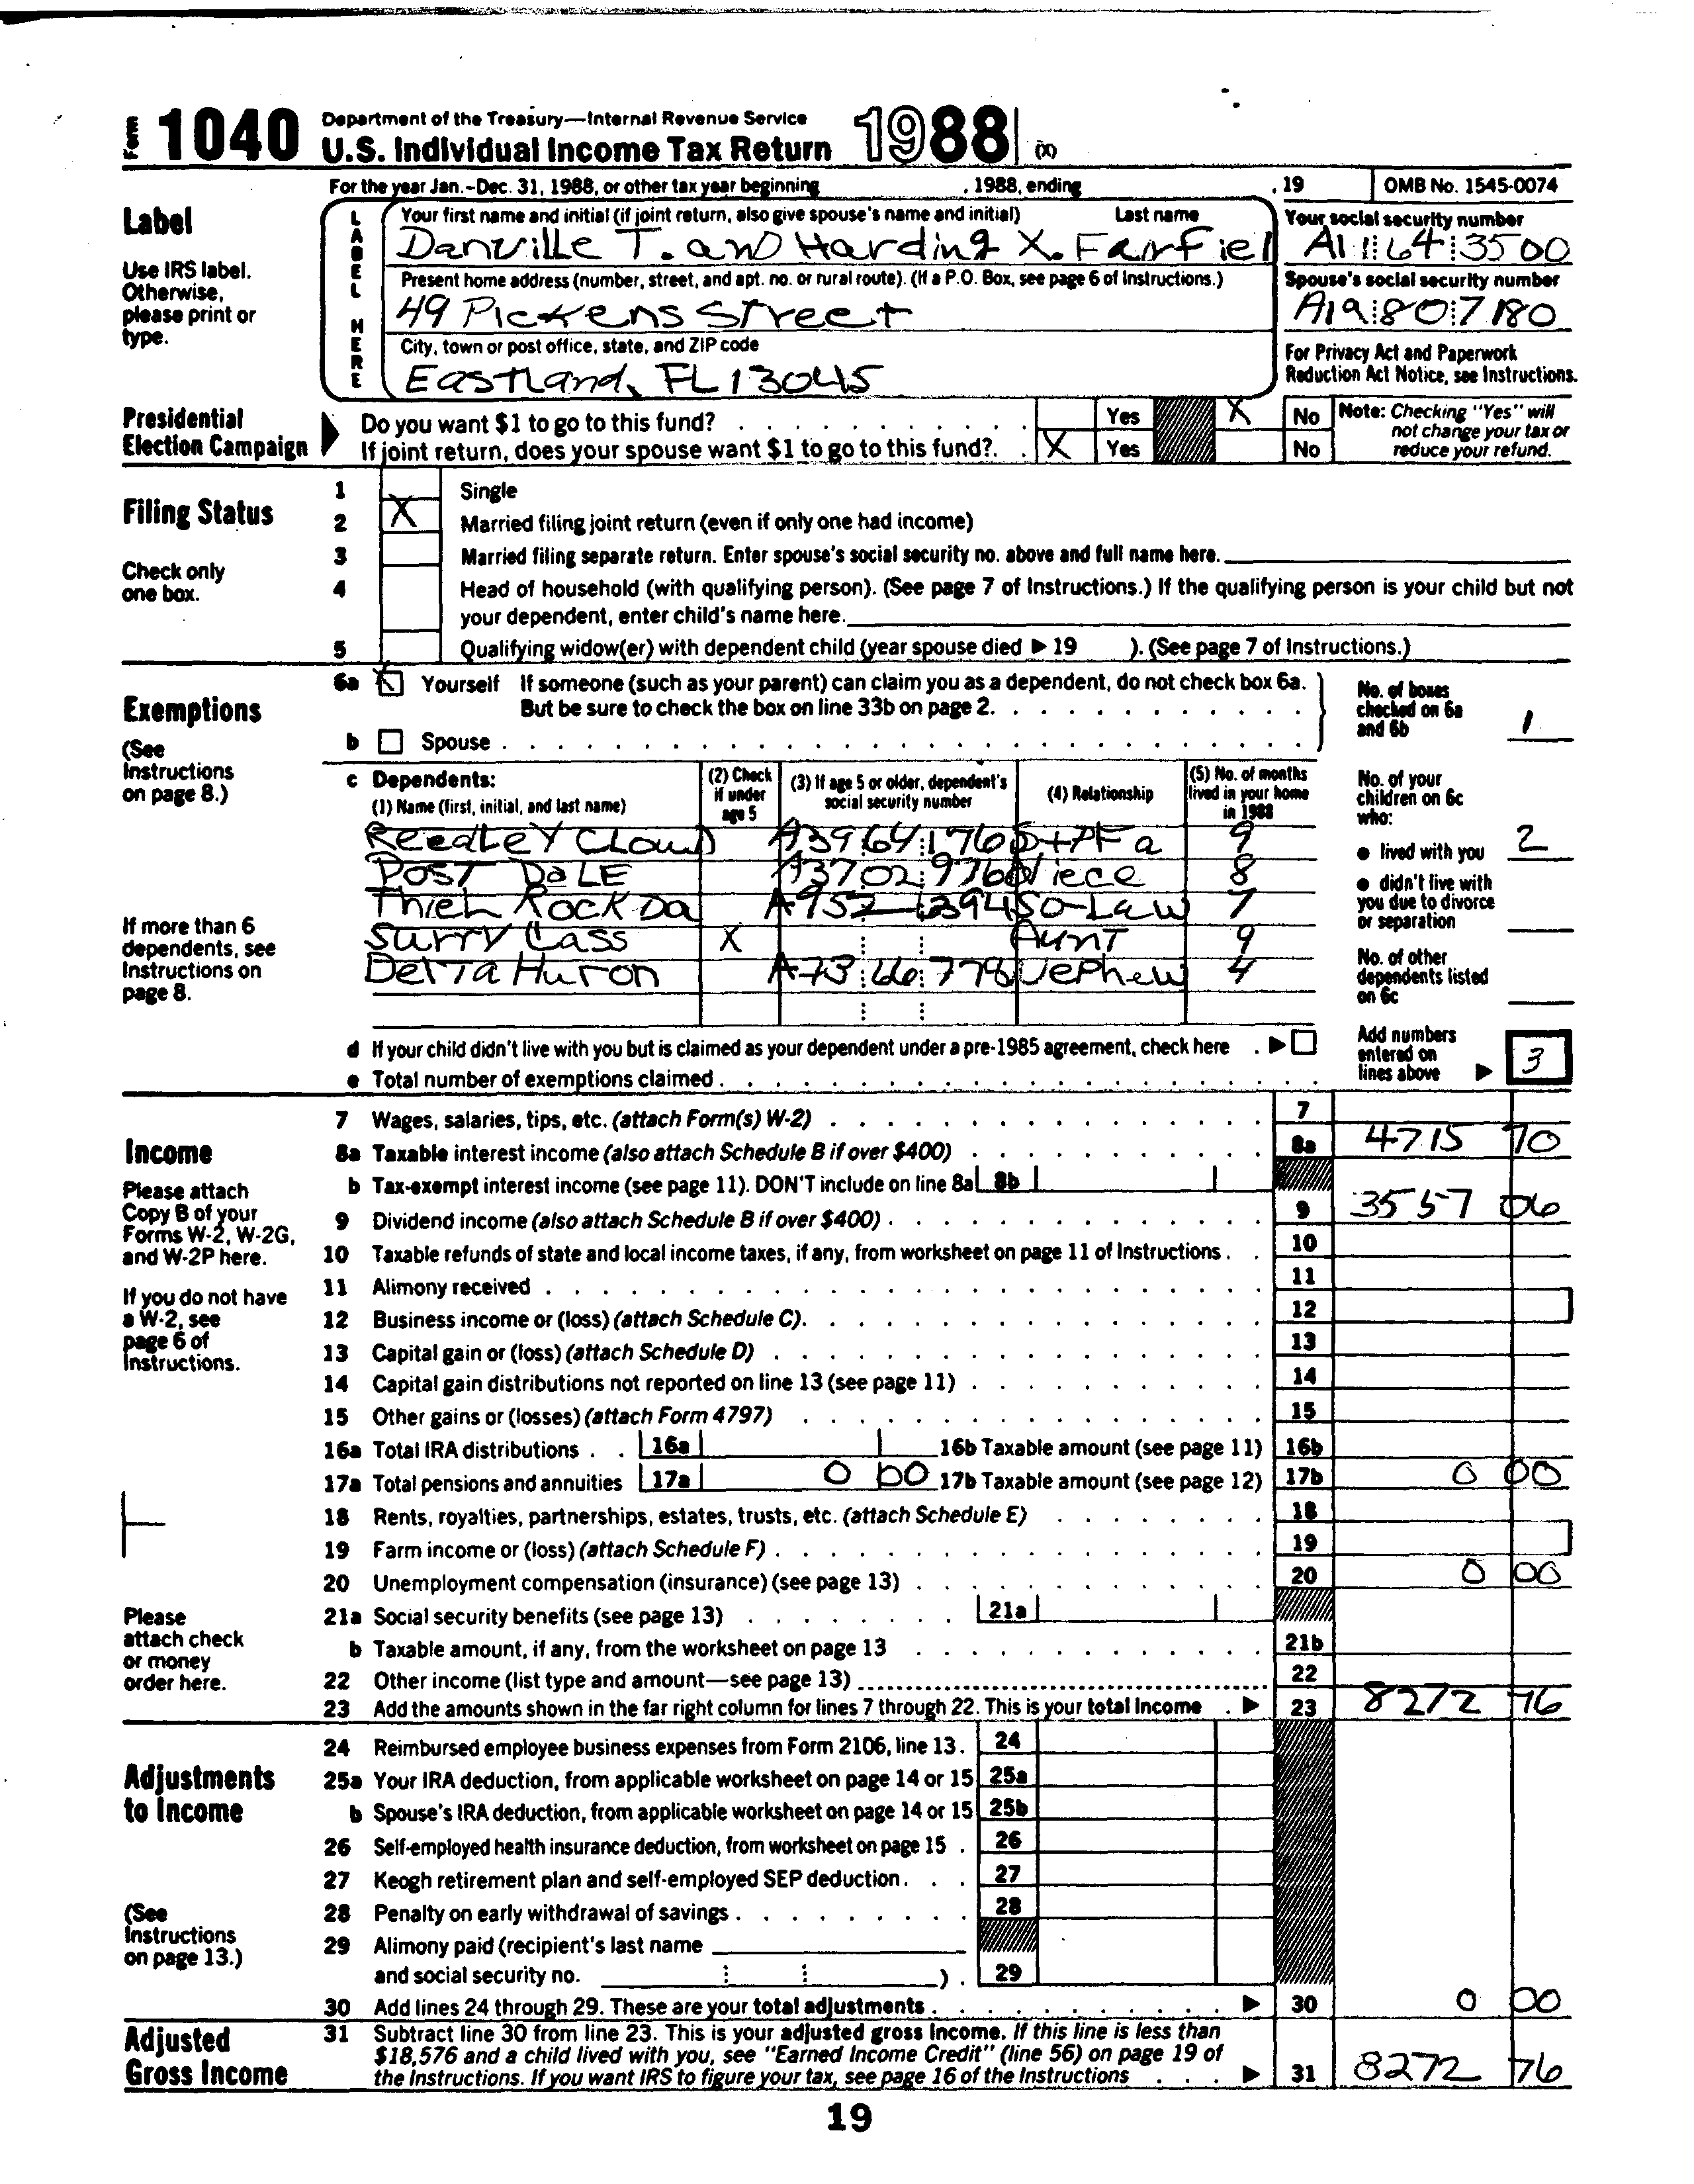 Form 1040 Department of the Treasury—Internal Revenue Service
U.S. Individual Income Tax Return 1988 (X)
For the year Jan.-Dec. 31, 1988, or other tax year beginning , 1988, ending , 19 OMB No. 1545-0074
Label
Use IRS label. Otherwise, please print or type.
LABEL HERE
Your first name and initial (if joint return, also give spouse's name and initial) Last name
Danville T. and Harding X. Fairfiel
Your social security number
A11 64 3500
Present home address (number, street, and apt. no. or rural route). (If a P.O. Box, see page 6 of Instructions.)
49 Pickens Street
Spouse's social security number
A19 80 7180
City, town or post office, state, and ZIP code
Eastland, FL 13045
For Privacy Act and Paperwork Reduction Act Notice, see Instructions.
Presidential Election Campaign
Do you want $1 to go to this fund? Yes X No
If joint return, does your spouse want $1 to go to this fund? X Yes No
Note: Checking "Yes" will not change your tax or reduce your refund.
Filing Status
Check only one box.
1 Single
2 X Married filing joint return (even if only one had income)
3 Married filing separate return. Enter spouse's social security no. above and full name here.
4 Head of household (with qualifying person). (See page 7 of Instructions.) If the qualifying person is your child but not
your dependent, enter child's name here.
5 Qualifying widow(er) with dependent child (year spouse died ▶ 19 ). (See page 7 of Instructions.)
Exemptions
(See Instructions on page 8.)
6a X Yourself If someone (such as your parent) can claim you as a dependent, do not check box 6a.
But be sure to check the box on line 33b on page 2.
b Spouse
No. of boxes checked on 6a and 6b 1
c Dependents:
(1) Name (first, initial, and last name) (2) Check if under age 5 (3) If age 5 or older, dependent's social security number (4) Relationship (5) No. of months lived in your home in 1988
Reedley Cloud A39 64 1760 StpFa 9
Post Dale A37 02 9760 Niece 8
Thiel Rock Da A95 2 1394 So-Law 7
Surry Cass X Aunt 9
Delta Huron A73 66 778 Nephew 4
If more than 6 dependents, see Instructions on page 8.
No. of your children on 6c who:
● lived with you 2
● didn't live with you due to divorce or separation
No. of other dependents listed on 6c
d If your child didn't live with you but is claimed as your dependent under a pre-1985 agreement, check here ▶
e Total number of exemptions claimed
Add numbers entered on lines above ▶ 3
Income
Please attach Copy B of your Forms W-2, W-2G, and W-2P here.
If you do not have a W-2, see page 6 of Instructions.
Please attach check or money order here.
7 Wages, salaries, tips, etc. (attach Form(s) W-2) 7
8a Taxable interest income (also attach Schedule B if over $400) 8a 4715 70
b Tax-exempt interest income (see page 11). DON'T include on line 8a 8b
9 Dividend income (also attach Schedule B if over $400) 9 3557 06
10 Taxable refunds of state and local income taxes, if any, from worksheet on page 11 of Instructions 10
11 Alimony received 11
12 Business income or (loss) (attach Schedule C) 12
13 Capital gain or (loss) (attach Schedule D) 13
14 Capital gain distributions not reported on line 13 (see page 11) 14
15 Other gains or (losses) (attach Form 4797) 15
16a Total IRA distributions 16a 16b Taxable amount (see page 11) 16b
17a Total pensions and annuities 17a 0 00 17b Taxable amount (see page 12) 17b 0 00
18 Rents, royalties, partnerships, estates, trusts, etc. (attach Schedule E) 18
19 Farm income or (loss) (attach Schedule F) 19
20 Unemployment compensation (insurance) (see page 13) 20 0 00
21a Social security benefits (see page 13) 21a
b Taxable amount, if any, from the worksheet on page 13 21b
22 Other income (list type and amount—see page 13) 22
23 Add the amounts shown in the far right column for lines 7 through 22. This is your total income ▶ 23 8272 76
Adjustments to Income
(See Instructions on page 13.)
24 Reimbursed employee business expenses from Form 2106, line 13. 24
25a Your IRA deduction, from applicable worksheet on page 14 or 15 25a
b Spouse's IRA deduction, from applicable worksheet on page 14 or 15 25b
26 Self-employed health insurance deduction, from worksheet on page 15 26
27 Keogh retirement plan and self-employed SEP deduction 27
28 Penalty on early withdrawal of savings 28
29 Alimony paid (recipient's last name
and social security no. ) 29
30 Add lines 24 through 29. These are your total adjustments ▶ 30 0 00
Adjusted Gross Income
31 Subtract line 30 from line 23. This is your adjusted gross income. If this line is less than
$18,576 and a child lived with you, see "Earned Income Credit" (line 56) on page 19 of
the Instructions. If you want IRS to figure your tax, see page 16 of the Instructions ▶ 31 8272 76
19